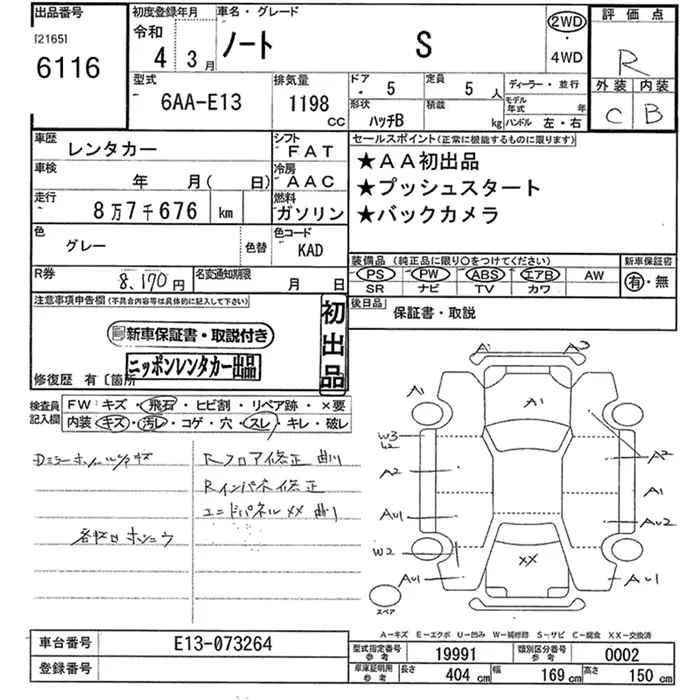 出品番号
[2165]
6116
初度登録年月
令和
4 3月
車名・グレード
ノート S
2WD
・
4WD
評価点
R
外装 内装
C B
型式
6AA-E13
排気量
1198
CC
ドア 5
定員 5人
ディーラー・並行
形状
ハッチB
積載
kg
モデル
年式 年
ハンドル 左・右
車歴
レンタカー
シフト
FAT
車検
年 月( 日)
冷房
AAC
走行
8万7千676 km
燃料
ガソリン
色
グレー
色替
色コード
KAD
R券
8,170円
名変通知期限
月 日
セールスポイント(正常に機能するものに限ります)
★AA初出品
★プッシュスタート
★バックカメラ
装備品(純正品に限り○をつけてください)
新車保証書
PS PW ABS エアB AW
有・無
SR ナビ TV カワ
後日品
保証書・取説
注意事項申告欄(不具合内容等は具体的に記入して下さい)
新車保証書・取説付き
ニッポンレンタカー出品
初出品
修復歴 有〔箇所
検査員
記入欄
FW:キズ・飛石・ヒビ割・リペア跡・×要
内装 キズ・汚レ・コゲ・穴・スレ・キレ・破レ
Rフロア修正 曲り
Rインパネ修正
エンドパネルXX 曲り
A1 A2
A1
A1
W3
A2
A2
A1
AU1
AU2
W2
XX
AU1
AU1
スペア
A-キズ E-エクボ U-凹み W-補修跡 S-サビ C-腐食 XX-交換済
車台番号
E13-073264
登録番号
型式指定番号
参考
19991
類別区分番号
参考
0002
車庫証明用
参考
長さ
404 cm
幅
169 cm
高さ
150 cm